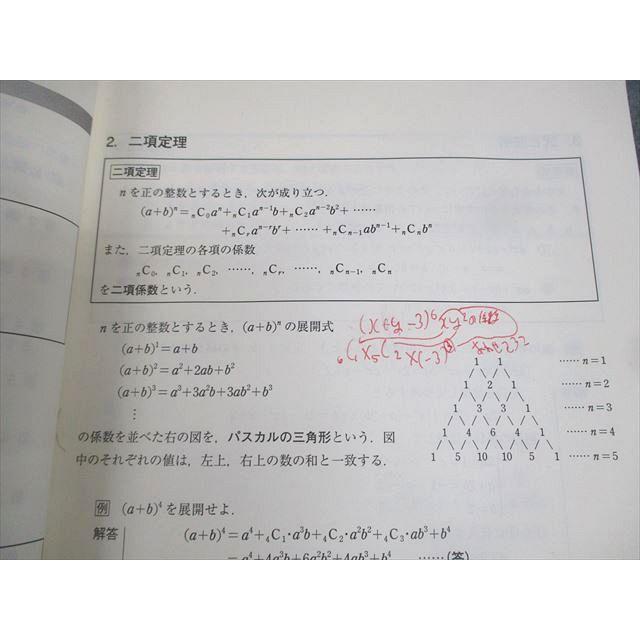 2. 二項定理
二項定理
n を正の整数とするとき，次が成り立つ．
(a+b)ⁿ=ₙC₀aⁿ+ₙC₁aⁿ⁻¹b+ₙC₂aⁿ⁻²b²+ ……
+ₙCᵣaⁿ⁻ʳbʳ+ …… +ₙCₙ₋₁abⁿ⁻¹+ₙCₙbⁿ
また，二項定理の各項の係数
ₙC₀, ₙC₁, ₙC₂, ……, ₙCᵣ, ……, ₙCₙ₋₁, ₙCₙ
を二項係数という．
n を正の整数とするとき，(a+b)ⁿ の展開式
(a+b)¹=a+b
(a+b)²=a²+2ab+b²
(a+b)³=a³+3a²b+3ab²+b³
⋮
の係数を並べた右の図を，パスカルの三角形という．図
中のそれぞれの値は，左上，右上の数の和と一致する．
(x+y-3)⁶ xy²の係数
₆C₁×₅C₂×(-3)³
1 1 ……n=1
1 2 1 ……n=2
1 3 3 1 ……n=3
1 4 6 4 1 ……n=4
1 5 10 10 5 1 ……n=5
例 (a+b)⁴ を展開せよ．
解答 (a+b)⁴=a⁴+₄C₁·a³b+₄C₂·a²b²+₄C₃·ab³+b⁴
=a⁴+4a³b+6a²b²+4ab³+b⁴ ……(答)